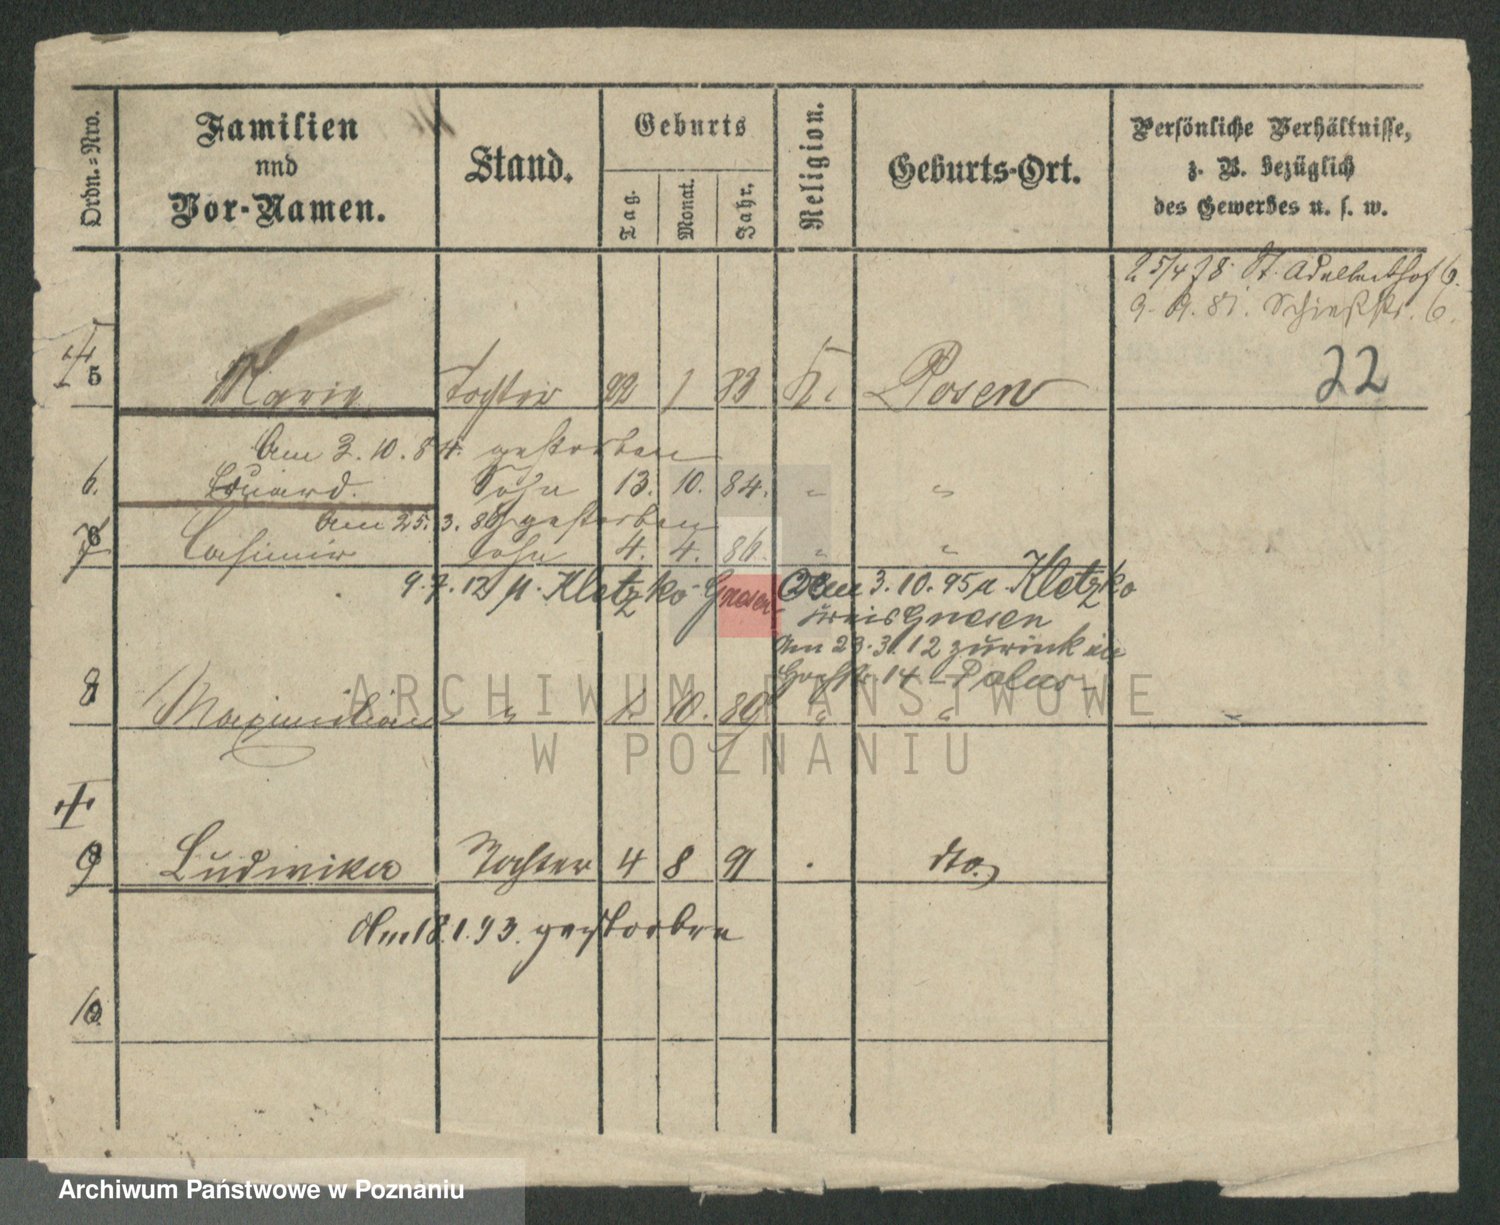 Ordn.-Nro.
Familien
und
Vor-Namen.
Stand.
Geburts
Tag.
Monat.
Jahr.
Religion.
Geburts-Ort.
Persönliche Verhältnisse,
z. B. bezüglich
des Gewerbes u. s. w.
25/4 78. St. Adalberthof 6.
9. 81. Schießstr. 6.
22
5 Marie Tochter 1 83 K. Posen
Am 3. 10. 84. gestorben
6. Eduard. Sohn 13. 10. 84. " "
Am 25. 3. 86 gestorben
7 Casimir Sohn 4. 4. 86. " "
9. 7. 12 n. Kletzko-Gnesen
Am 3. 10. 95 n. Kletzko
Kreis Gnesen
Am 23. 3. 12 zurück
14
8 Maximilian " 10. 89 " "
9 Ludwika Tochter 4 8 91 . dto.
Am 18. 1. 93. gestorben
10.
ARCHIWUM PAŃSTWOWE
W POZNANIU
Archiwum Państwowe w Poznaniu